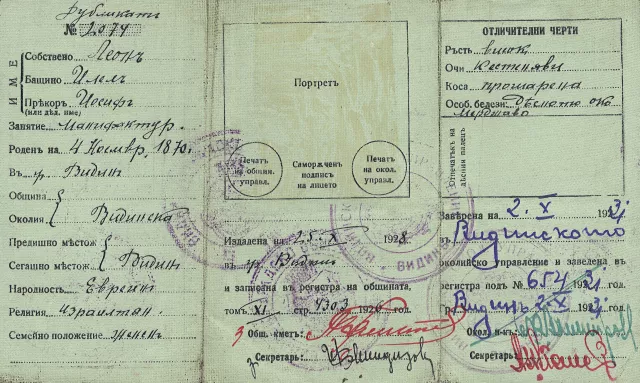 Дубликатъ
№ 2074
ИМЕ
Собствено Леонъ
Бащино Илелъ
Прѣкоръ Иосифъ
(или дѣл. име)
Занятие Манифактур.
Роденъ на 4 Ноемвр. 1870.
Въ гр. Видинъ
Община
Околия Видинска
Предишно мѣстож.
Сегашно мѣстож. Видинъ
Народность Евреинъ
Религия Израилтян.
Семейно положение Жененъ
Портретъ
Печатъ на общин. управл.
Саморѫченъ подписъ на лицето
Печатъ на окол. управл.
Издадена на 25. X 1928
въ гр. Видинъ
и записана въ регистра на общината,
томъ XI стр. 4303 192
Общ. кметъ:
Секретарь:
ОТЛИЧИТЕЛНИ ЧЕРТИ
Ръстъ високъ
Очи кестеняви
Коса прошарена
Особ. белези: Дѣсното око
мерджаво
Отпечатъкъ на дѣсния палецъ
Завѣрена на 2. X 192
въ Видинското
околийско Управление и заведена въ
регистра подъ № 654
Видинъ 2 X
Окол. н-къ:
Секретарь: